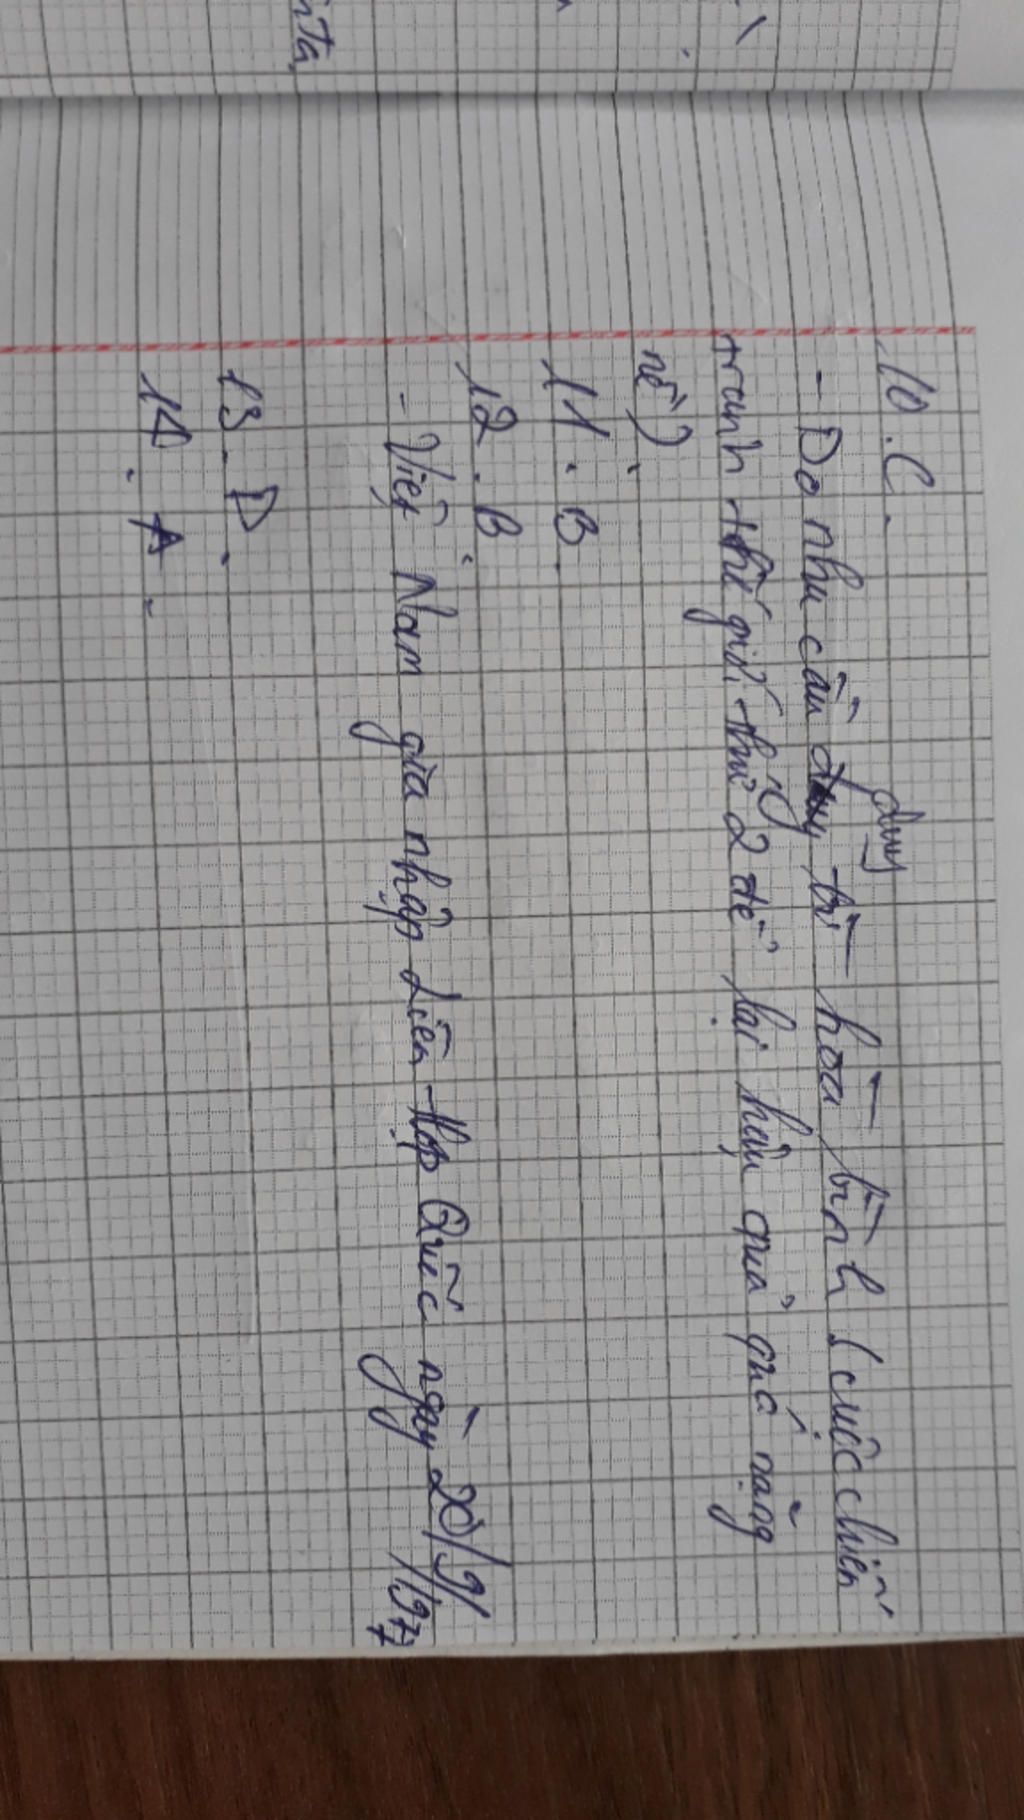 10. C.
- Do nhu cầu duy trì hòa bình (cuộc chiến
tranh thế giới thứ 2 để lại hậu quả quá nặng
nề).
11. B.
12. B.
- Việt Nam gia nhập Liên Hợp Quốc ngày 20/9/
1977
13. D.
14. A.